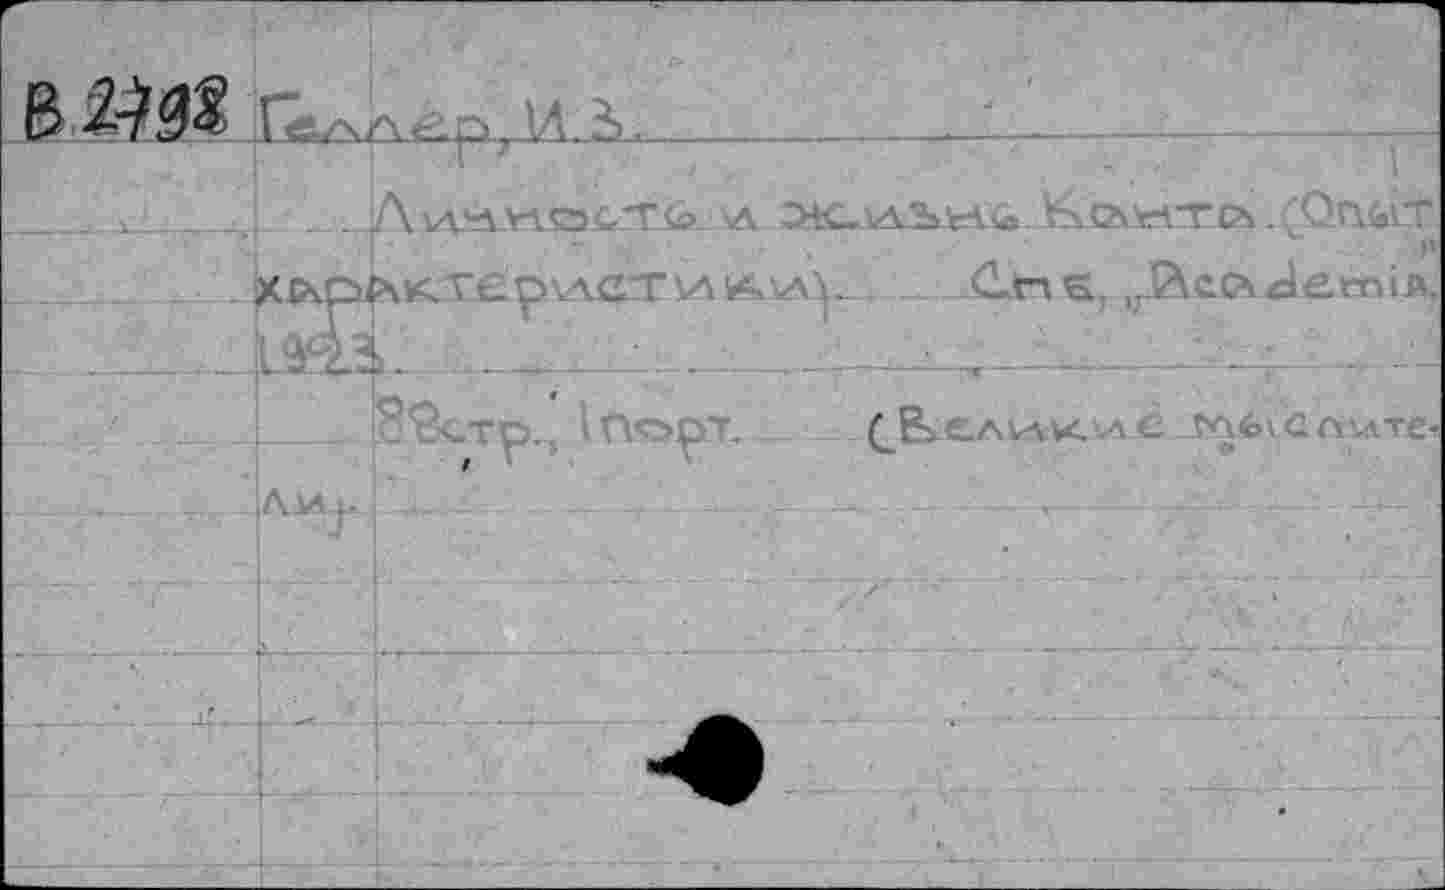 В 2498 Геллер, И.З.
Личность и жизнь Канта. (Опыт
характеристики). Спб, „Academia",
1923.
88 стр., 1 порт. (Великие мыслите-
ли).